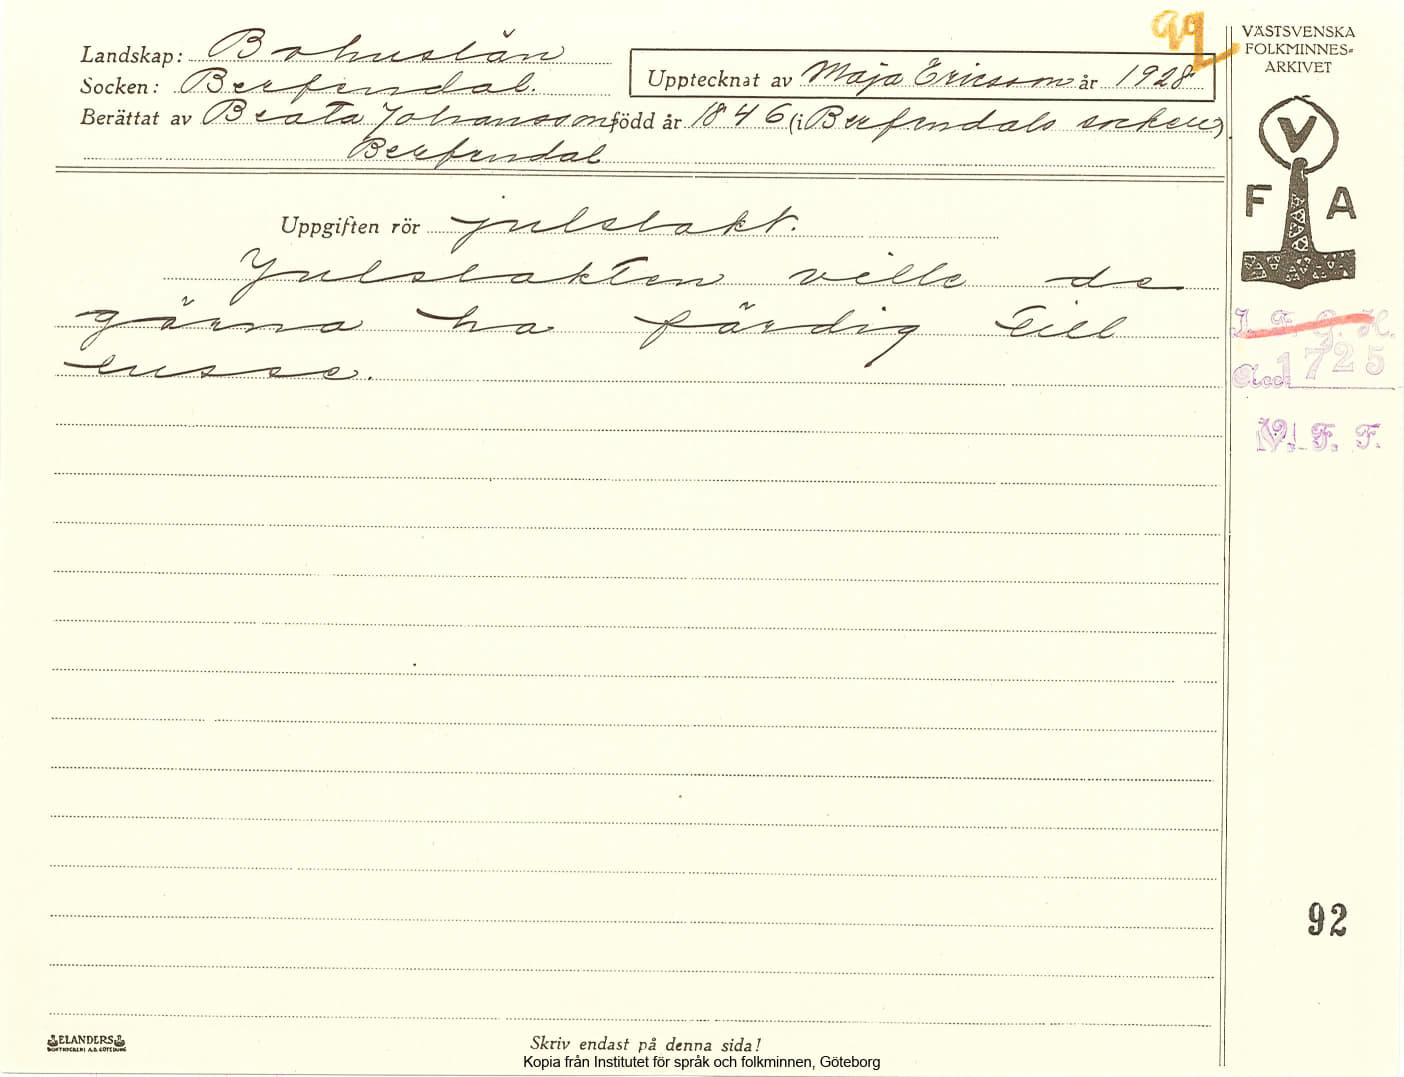 Landskap: Bohuslän
Socken: Berfendal.
Upptecknat av Maja Ericsson år 1928
Berättat av Beata Johansson född år 1846 (i Berfendals socken).
Berfendal
Uppgiften rör julslakt.
Julslakten ville de
gärna ha färdig till
lusse.
99
VÄSTSVENSKA
FOLKMINNES=
ARKIVET
V
F A
I. F. G. H.
Acc. 1725
V. F. F.
92
ELANDERS
BOKTRYCKERI A.B. GÖTEBORG
Skriv endast på denna sida!
Kopia från Institutet för språk och folkminnen, Göteborg